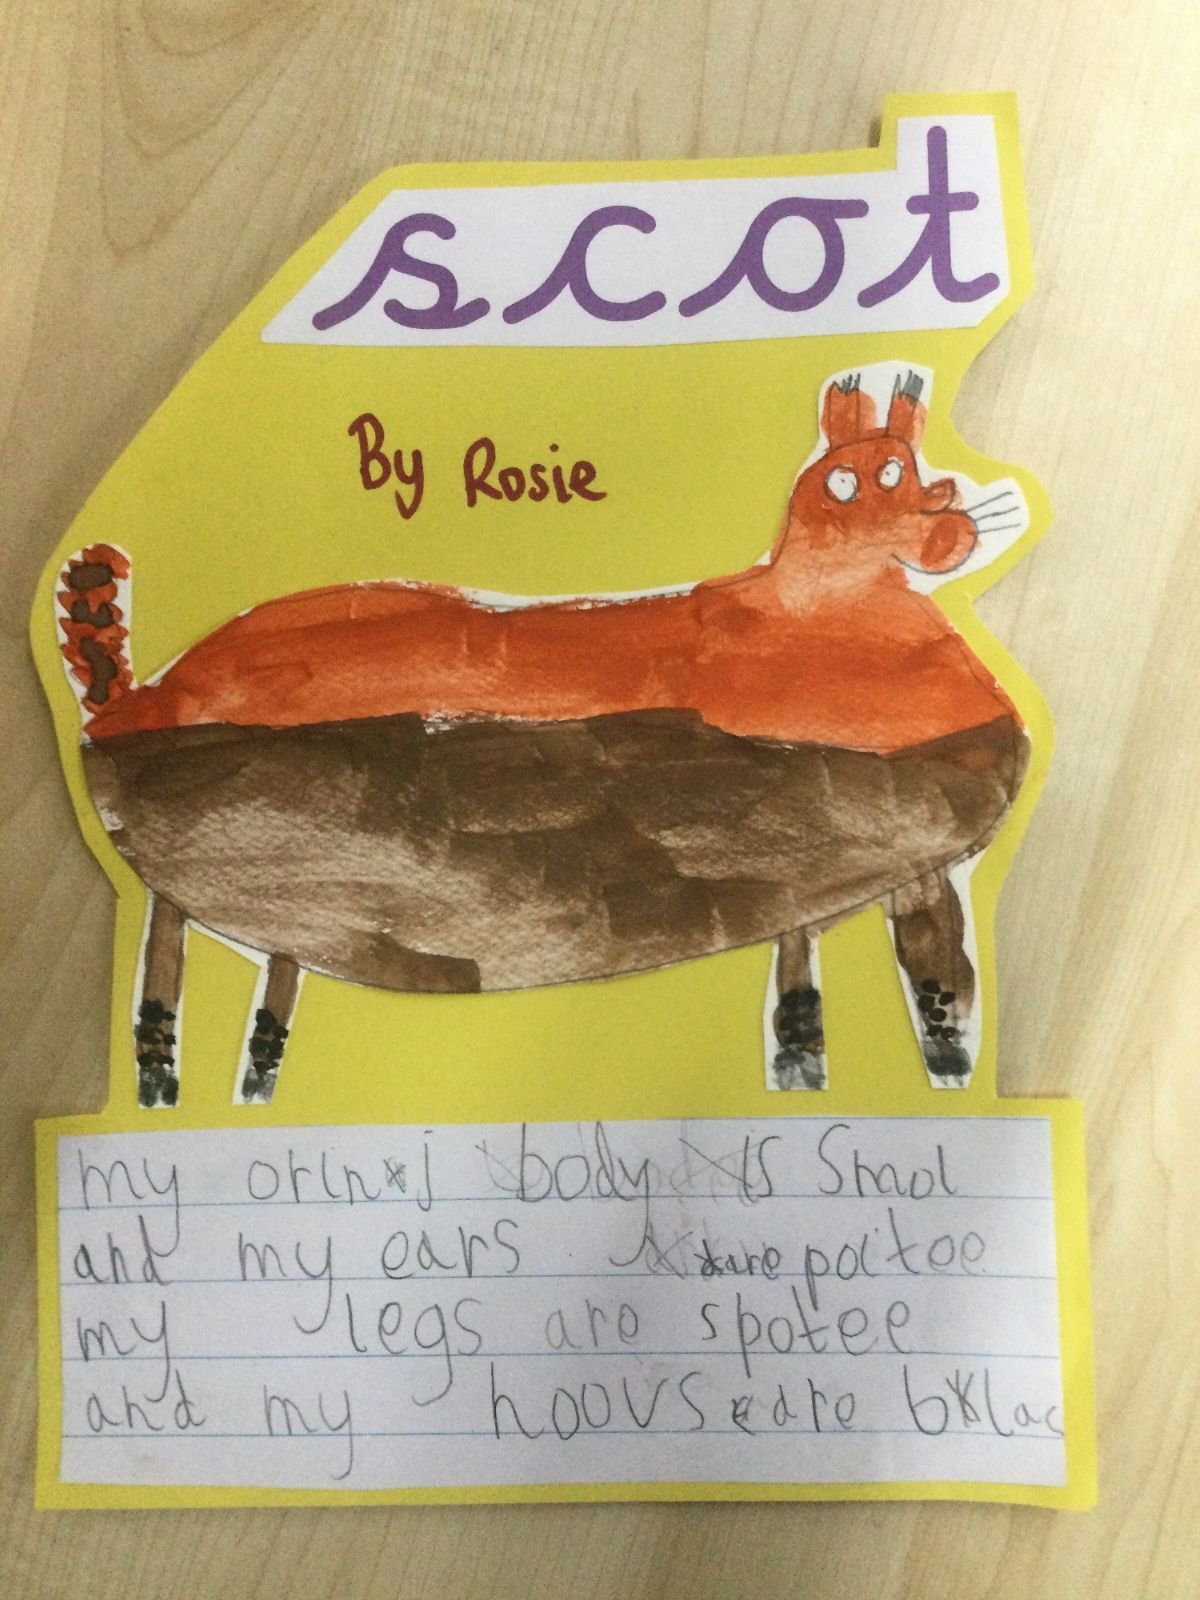 scot
By Rosie
my orinj body is smol
and my ears are poitee
my legs are spotee
and my hoovs are blac